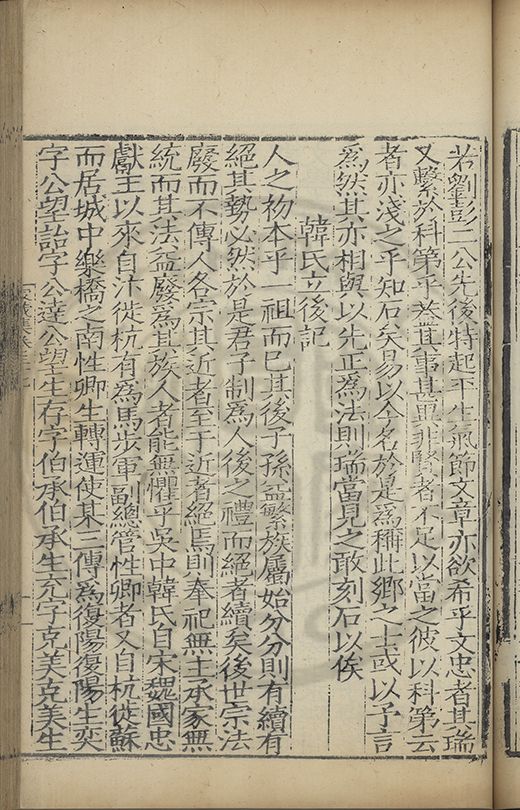 若劉彭二公先後特起平生氣節文章亦欲希乎文忠者其瑞
又繫於科第乎茲其事甚異非賢者不足以當之彼以科第云
者亦淺之乎知石矣易以今名於是為稱此鄉之士或以予言
為然其亦相與以先正為法則瑞當見之敢刻石以俟
韓氏立後記
人之初本乎一祖而已其後子孫益繁族屬始分分則有續有
絕其勢必然於是君子制為人後之禮而絕者續矣後世宗法
廢而不傳人各宗其近者至于近者絕焉則奉祀無主承家無
統而其法益廢為其族人者能無懼乎吳中韓氏自宋魏國忠
獻王以來自汴徙杭有為馬步軍副總管性卿者又自杭徙蘇
而居城中樂橋之南性卿生轉運使某三傳為復陽復陽生奕
字公望詒字公達公望生存字伯承伯承生充字克美克美生